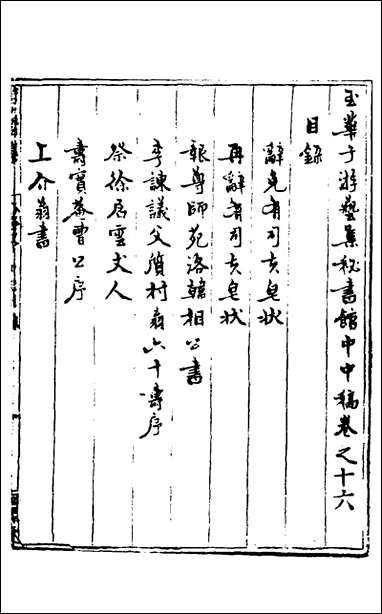 玉華子游藝集秘書館中中稿卷之十六
目錄
辭免有司夫皂狀
再辭有司夫皂狀
報尊師苑洛韓相公書
李諫議父質村翁六十壽序
祭徐居雲丈人
壽實菴曹公序
上介翁書